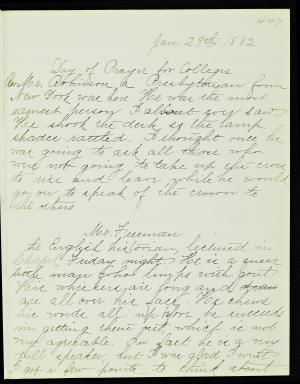 447
Jan. 29th, 1882
Day of Prayer for Colleges
Rev. Mr. Robinson a Presbyterian from
New York was here. He was the most
earnest person I about ever saw
He shook the desk so the lamp
shades rattled. I thought once he
was going to ask all those who
were not going to take up the cross
to rise and leave, while he would
go on to speak of the crown to
the others.
Mr. Freeman
the English historian, lectured in
Chapel Friday night. He is a queer
little man who limps with gout
His whiskers are long and
are all over his face. He chews
his words all up before he succeeds
in getting them out, which is not
very agreeable. In fact he is a very
dull speaker, but I was glad I went
I got a few points to think about